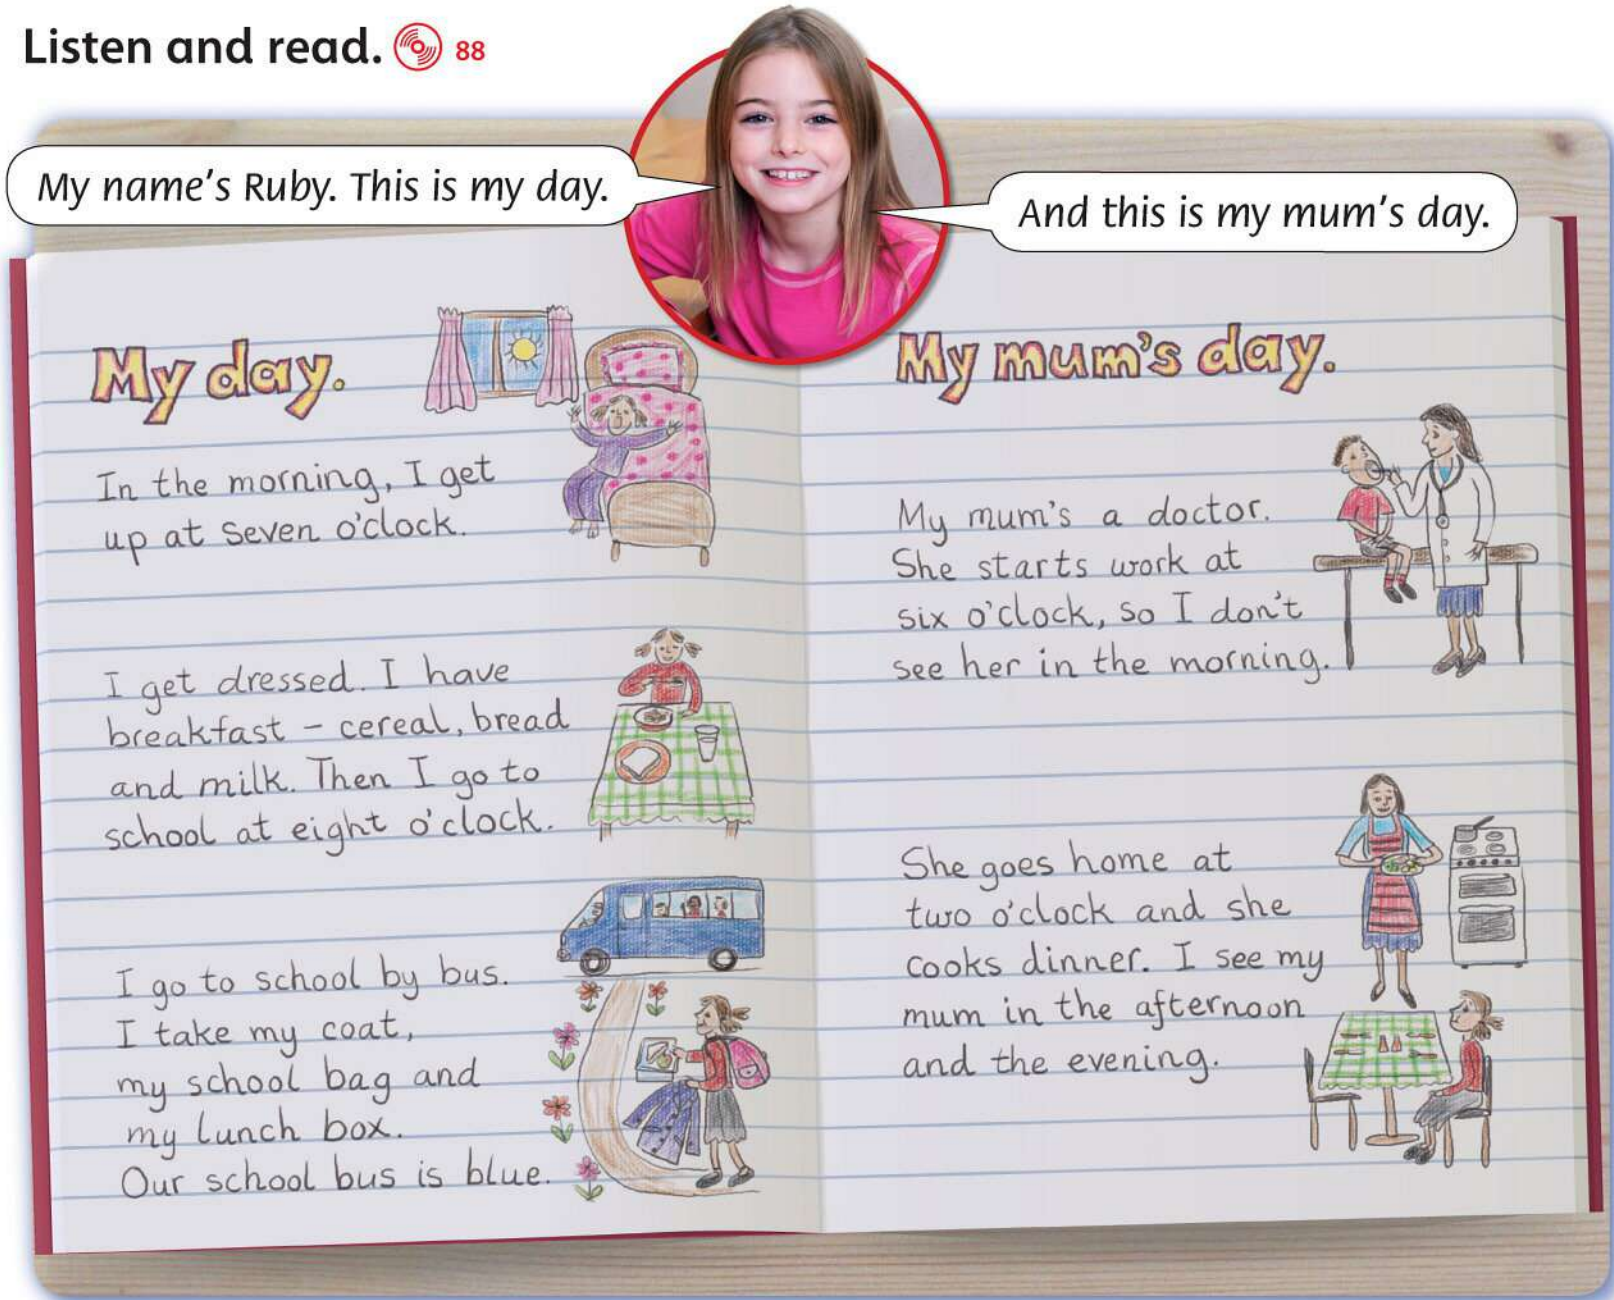 Listen and read. 88
My name's Ruby. This is my day.
And this is my mum's day.
My day.
In the morning, I get
up at seven o'clock.
I get dressed. I have
breakfast – cereal, bread
and milk. Then I go to
school at eight o'clock.
I go to school by bus.
I take my coat,
my school bag and
my lunch box.
Our school bus is blue.
My mum's day.
My mum's a doctor.
She starts work at
six o'clock, so I don't
see her in the morning.
She goes home at
two o'clock and she
cooks dinner. I see my
mum in the afternoon
and the evening.